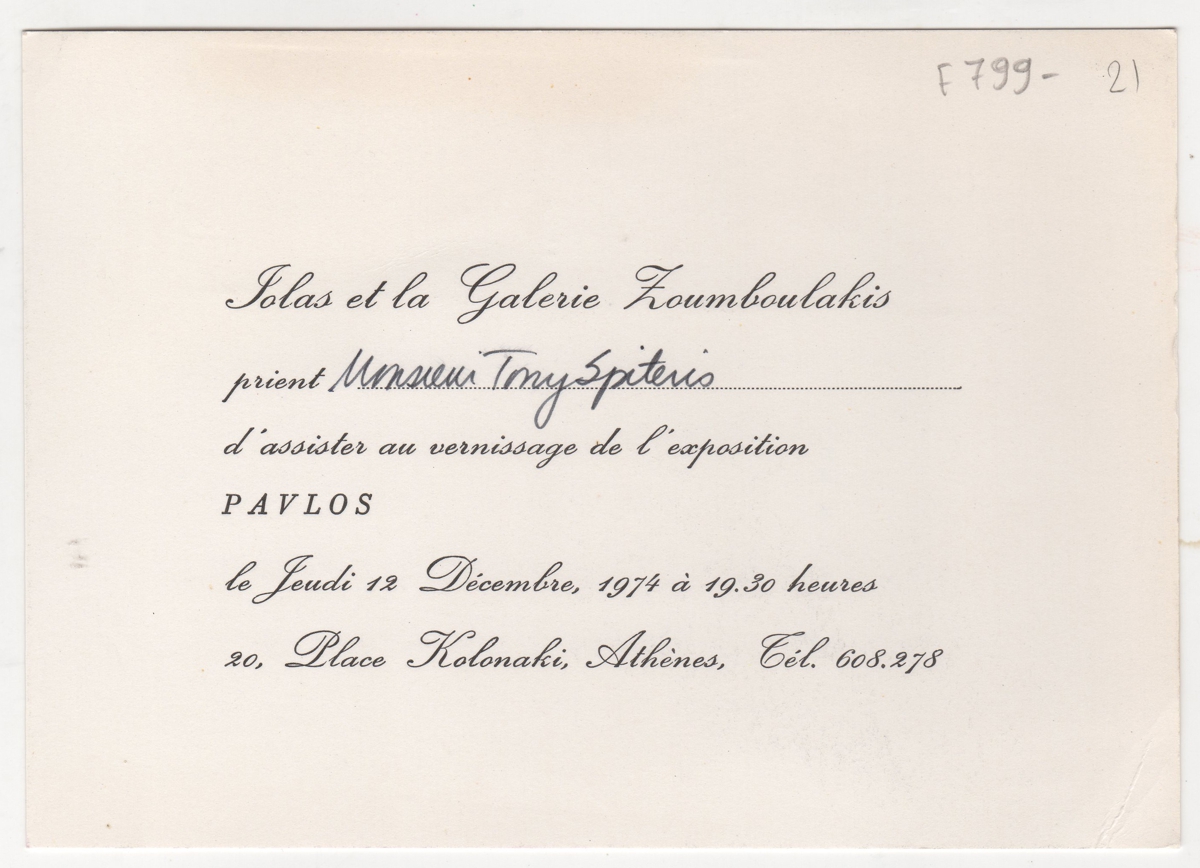 F 799- 21
Iolas et la Galerie Zoumboulakis
prient Monsieur Tony Spiteris
d'assister au vernissage de l'exposition
PAVLOS
le Jeudi 12 Décembre, 1974 à 19.30 heures
20, Place Kolonaki, Athènes, Tél. 608.278